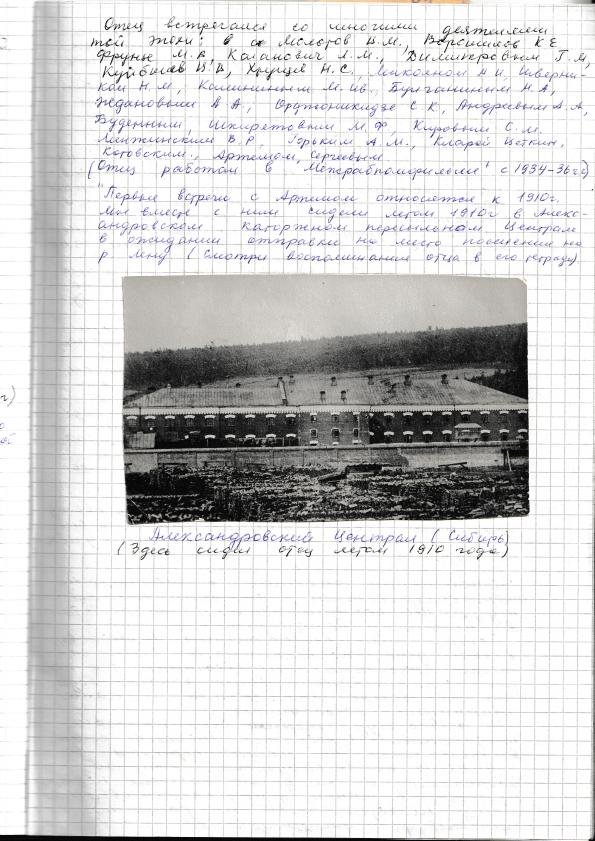 Отец встречался со многими деятелями
той эпохи: Молотов В.М., Ворошилов К Е
Фрунзе М.В, Каганович Л.М., Димитровым Г.М,
Куйбышев В,В, Хрущев Н.С., Микояном А И, Шверни-
ком Н.М, Калининым М.Ив., Булганиным Н.А,
Ждановым А А, Орджоникидзе С К, Андреевым А.А,
Буденным, Шкирятовым М.Ф, Кировым С.М.
Менжинским В.Р, Горьким А.М., Кларой Цеткин,
Котовским., Артемом, Сергеевым
(Отец работал в "Межрабпомфильм" с 1934-36гг)
"Первые встречи с Артемом относятся к 1910г.
мы вместе с ним сидели летом 1910г в Алекс-
андровском каторжном пересыльном Централе
в ожидании отправки на место поселения на
р Лену (Смотри воспоминания отца в его тетради)
Александровский Централ (Сибирь)
(Здесь сидел отец летом 1910 года)